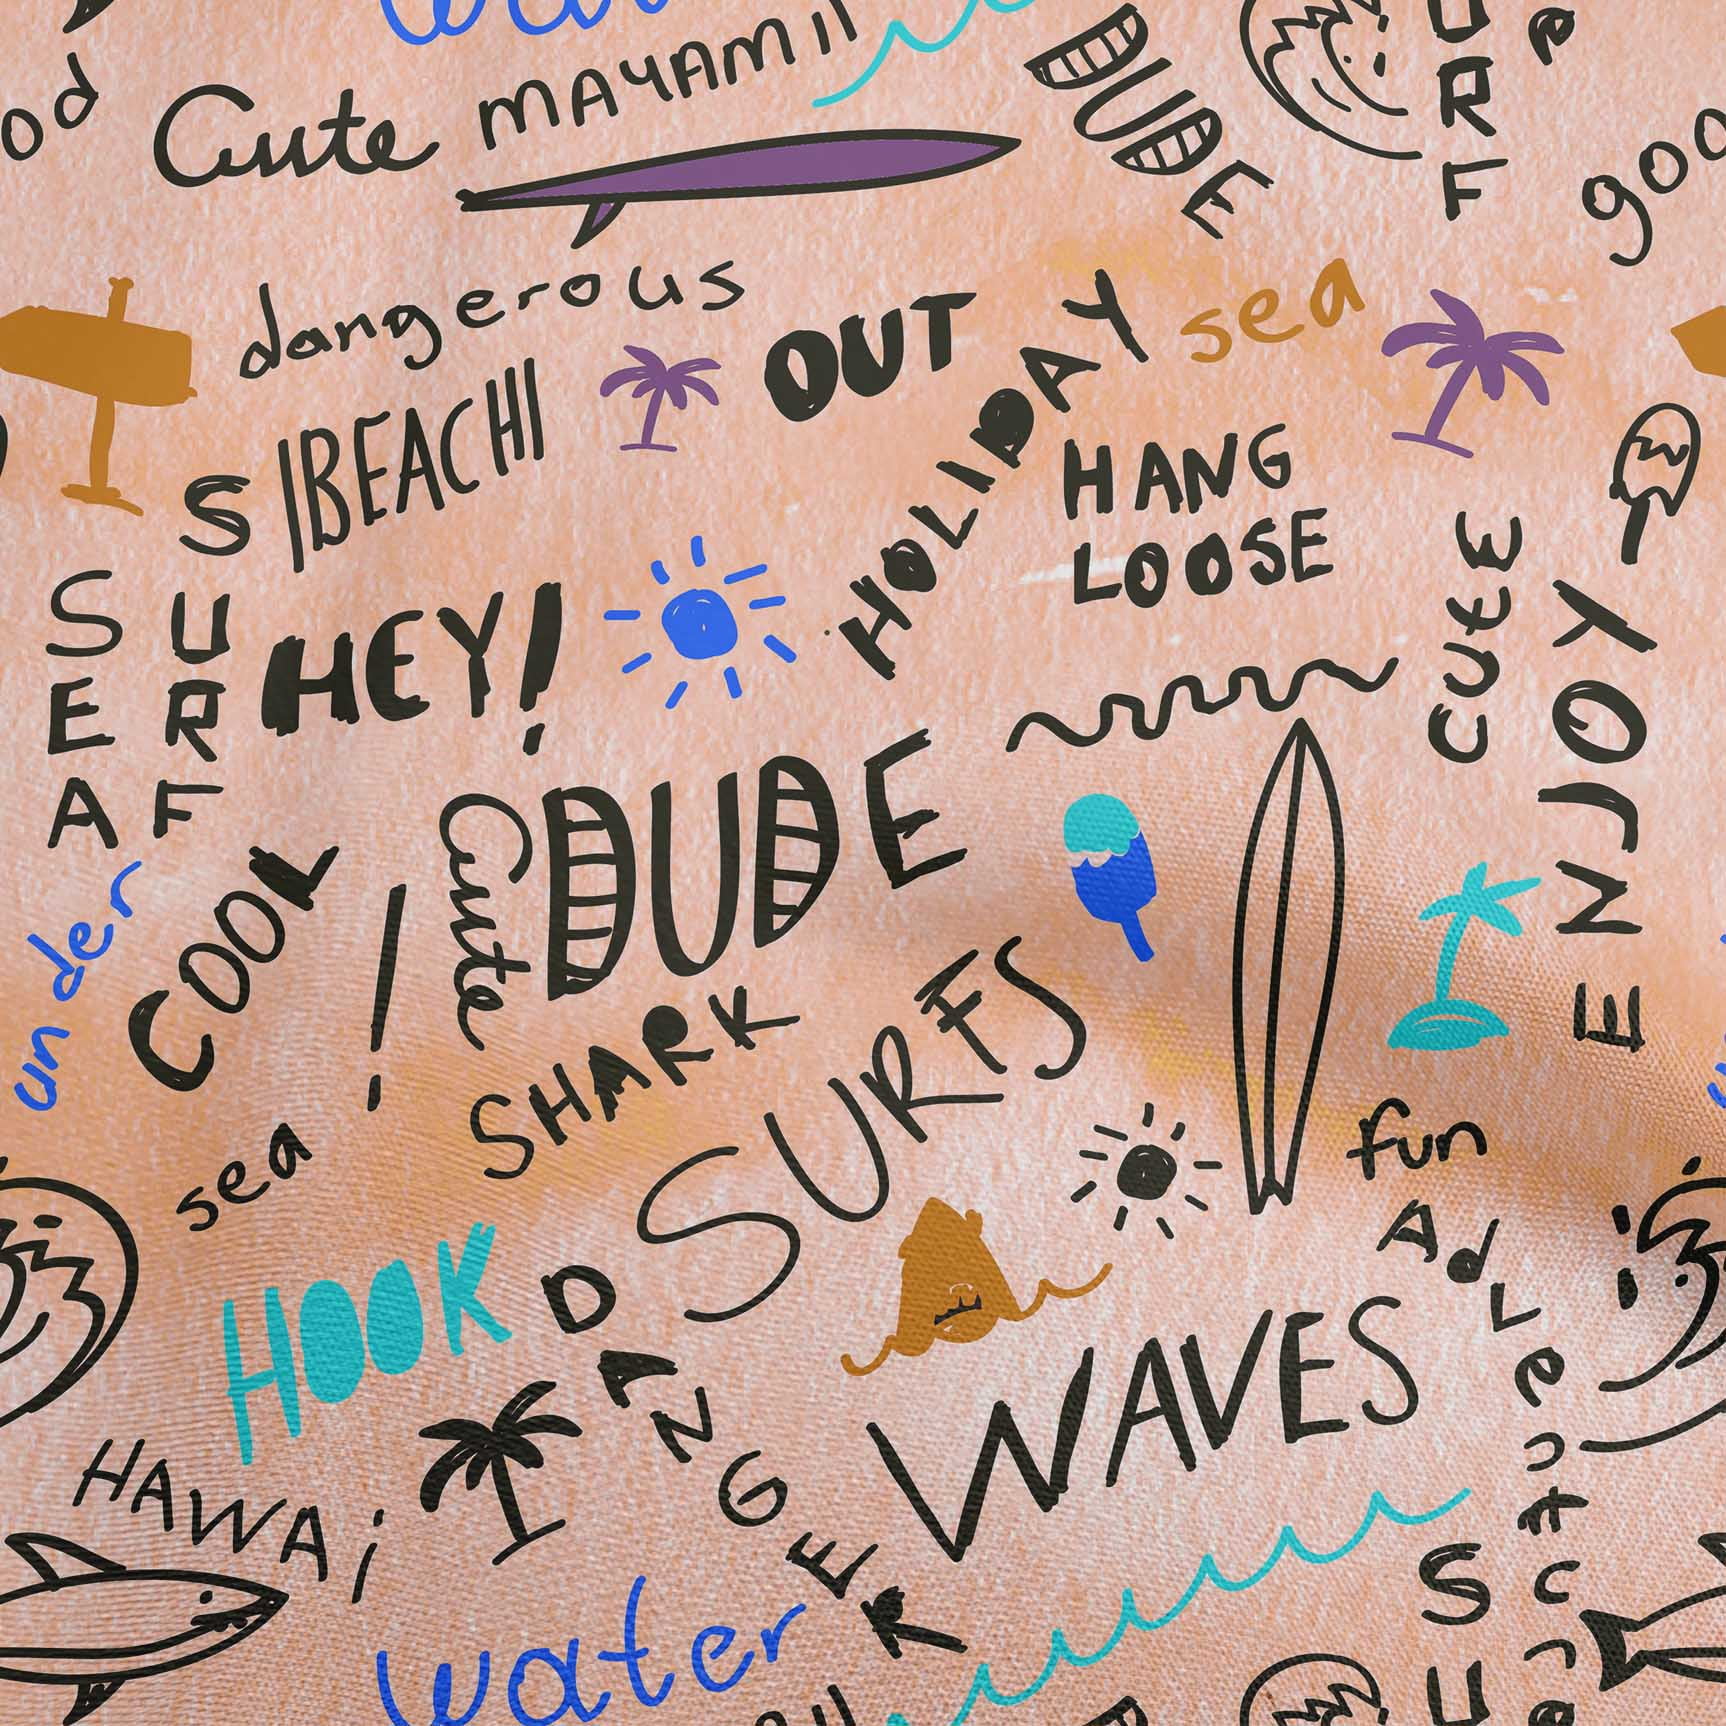 Cute
MAYAMII
DUDE
URF
goo
od
dangerous
OUT
HOLIDAY
sea
BEACH
HANG
LOOSE
SEA
SURF
HEY!
cute
ENJOY
Cute
DUDE
under
COOL
!
SHARK
SURFS
fun
sea
HOOK
DANGER
WAVES
AdVeutu
HAWAi
water
SU